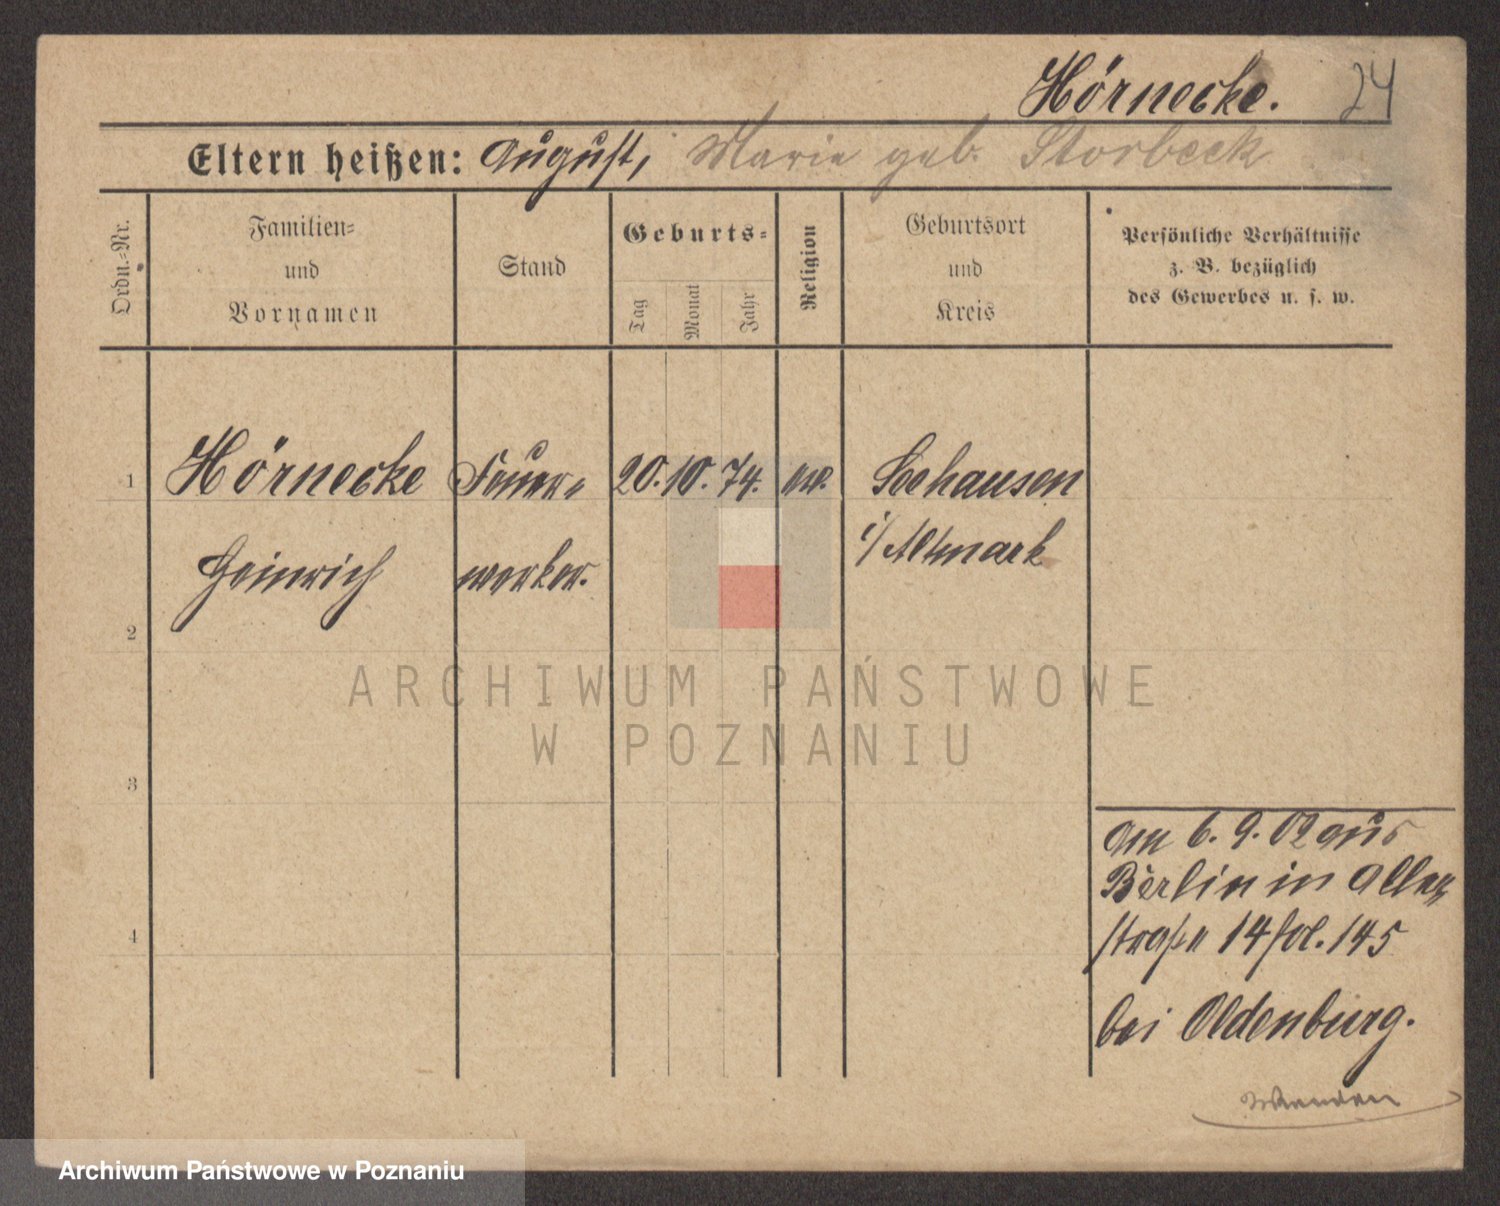 Hörnecke. 24
Eltern heißen: August, Marie geb. Storbeck
Ordn.-Nr.
Familien-
und
Vornamen
Stand
Geburts-
Tag
Monat
Jahr
Religion
Geburtsort
und
Kreis
Persönliche Verhältnisse
z. B. bezüglich
des Gewerbes u. s. w.
1 Hörnecke Feuer- 20. 10. 74. ev. Seehausen
Heinrich werker. i/Altmark
2
3
4
am 6. 9. 02 aus
Berlin in Allee
straße 14 fol. 145
bei Oldenburg.
Wenden
ARCHIWUM PAŃSTWOWE
W POZNANIU
Archiwum Państwowe w Poznaniu